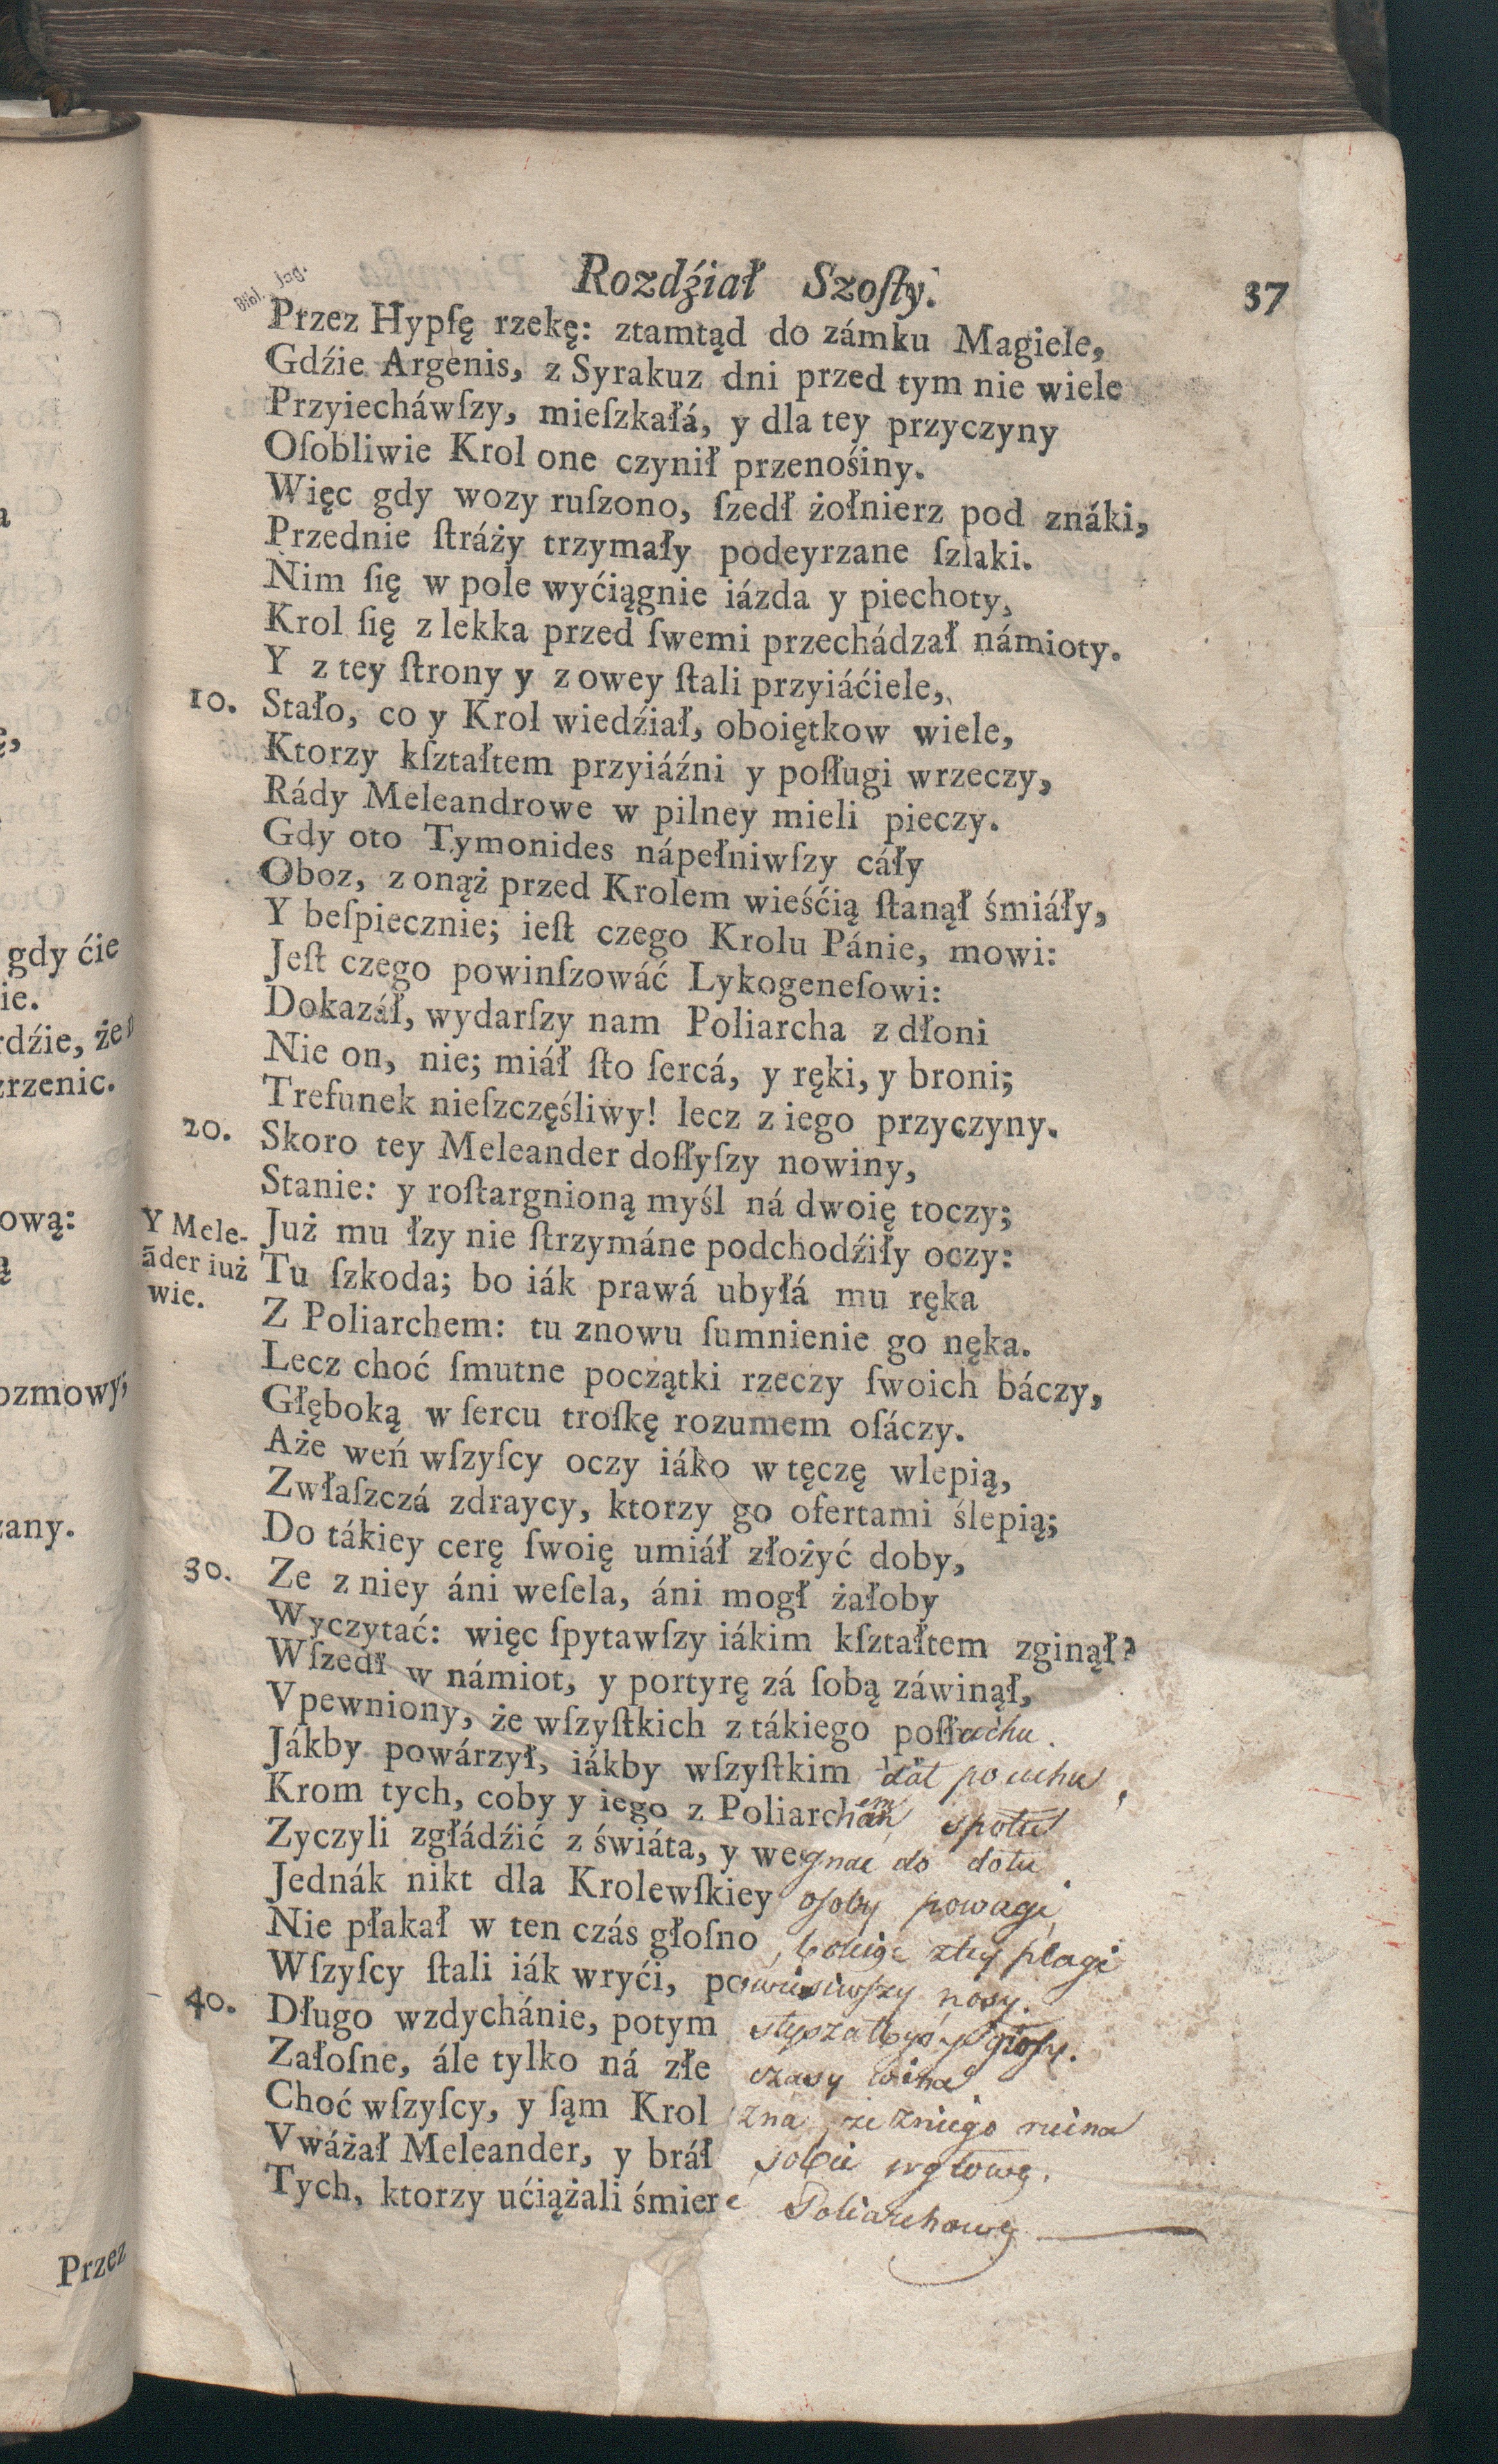 Rozdźiał Szoſty.
37
Bibl. Jag.
Przez Hypſę rzekę: ztamtąd do zámku Magiele,
Gdźie Argenis, z Syrakuz dni przed tym nie wiele
Przyiecháwſzy, mieſzkałá, y dla tey przyczyny
Oſobliwie Krol one czynił przenośiny.
Więc gdy wozy ruſzono, ſzedł żołnierz pod znáki,
Przednie ſtráży trzymały podeyrzane ſzlaki.
Nim ſię w pole wyćiągnie iázda y piechoty,
Krol ſię z lekka przed ſwemi przechádzał námioty.
Y z tey ſtrony y z owey ſtali przyiáćiele,
10. Stało, co y Krol wiedźiał, oboiętkow wiele,
Ktorzy kſztałtem przyiáźni y poſługi wrzeczy,
Rády Meleandrowe w pilney mieli pieczy.
Gdy oto Tymonides nápełniwſzy cáły
Oboz, z onąż przed Krolem wieśćią ſtanął śmiáły,
Y beſpiecznie; ieſt czego Krolu Pánie, mowi:
Jeſt czego powinſzowáć Lykogeneſowi:
Dokazáł, wydarſzy nam Poliarcha z dłoni
Nie on, nie; miáł ſto ſercá, y ręki, y broni;
Trefunek nieſzczęśliwy! lecz z iego przyczyny.
20. Skoro tey Meleander doſłyſzy nowiny,
Stanie: y roſtargnioną myśl ná dwoię toczy;
Y Mele-
āder iuż
wie.
Już mu łzy nie ſtrzymáne podchodźiły oczy:
Tu ſzkoda; bo iák prawá ubyłá mu ręka
Z Poliarchem: tu znowu ſumnienie go nęka.
Lecz choć ſmutne początki rzeczy ſwoich báczy,
Głęboką w ſercu troſkę rozumem oſáczy.
Aże weń wſzyſcy oczy iáko w tęczę wlepią,
Zwłaſzczá zdraycy, ktorzy go ofertami ślepią;
Do tákiey cerę ſwoię umiáł złożyć doby,
30. Ze z niey áni weſela, áni mogł żałoby
Wyczytać: więc ſpytawſzy iákim kſztałtem zginął?
Wſzedł w námiot, y portyrę zá ſobą záwinął,
Vpewniony, że wſzyſtkich z tákiego poſłuchu.
Jákby powárzył, iákby wſzyſtkim dał po uchu,
Krom tych, coby y iego z Poliarchem społu
Zyczyli zgłádźić z świáta, y wegnac do dołu.
Jednák nikt dla Krolewſkiey osoby powagi,
Nie płakał w ten czás głoſno, boiąc złey plagi
Wſzyſcy ſtali iák wryći, powiesiwſzy nosy.
40. Długo wzdychánie, potym słyszałbyś y głosy.
Załoſne, ále tylko ná złe czasy wina
Choć wſzyſcy, y ſąm Krol zna, że z niego ruina
Vwáżał Meleander, y bráł sobie w głowę.
Tych, ktorzy ućiążali śmierć Poliarchowę
a
gdy ćie
ie.
rdźie, że
zrzenic.
ową:
ą
ozmowy;
zany.
Przez